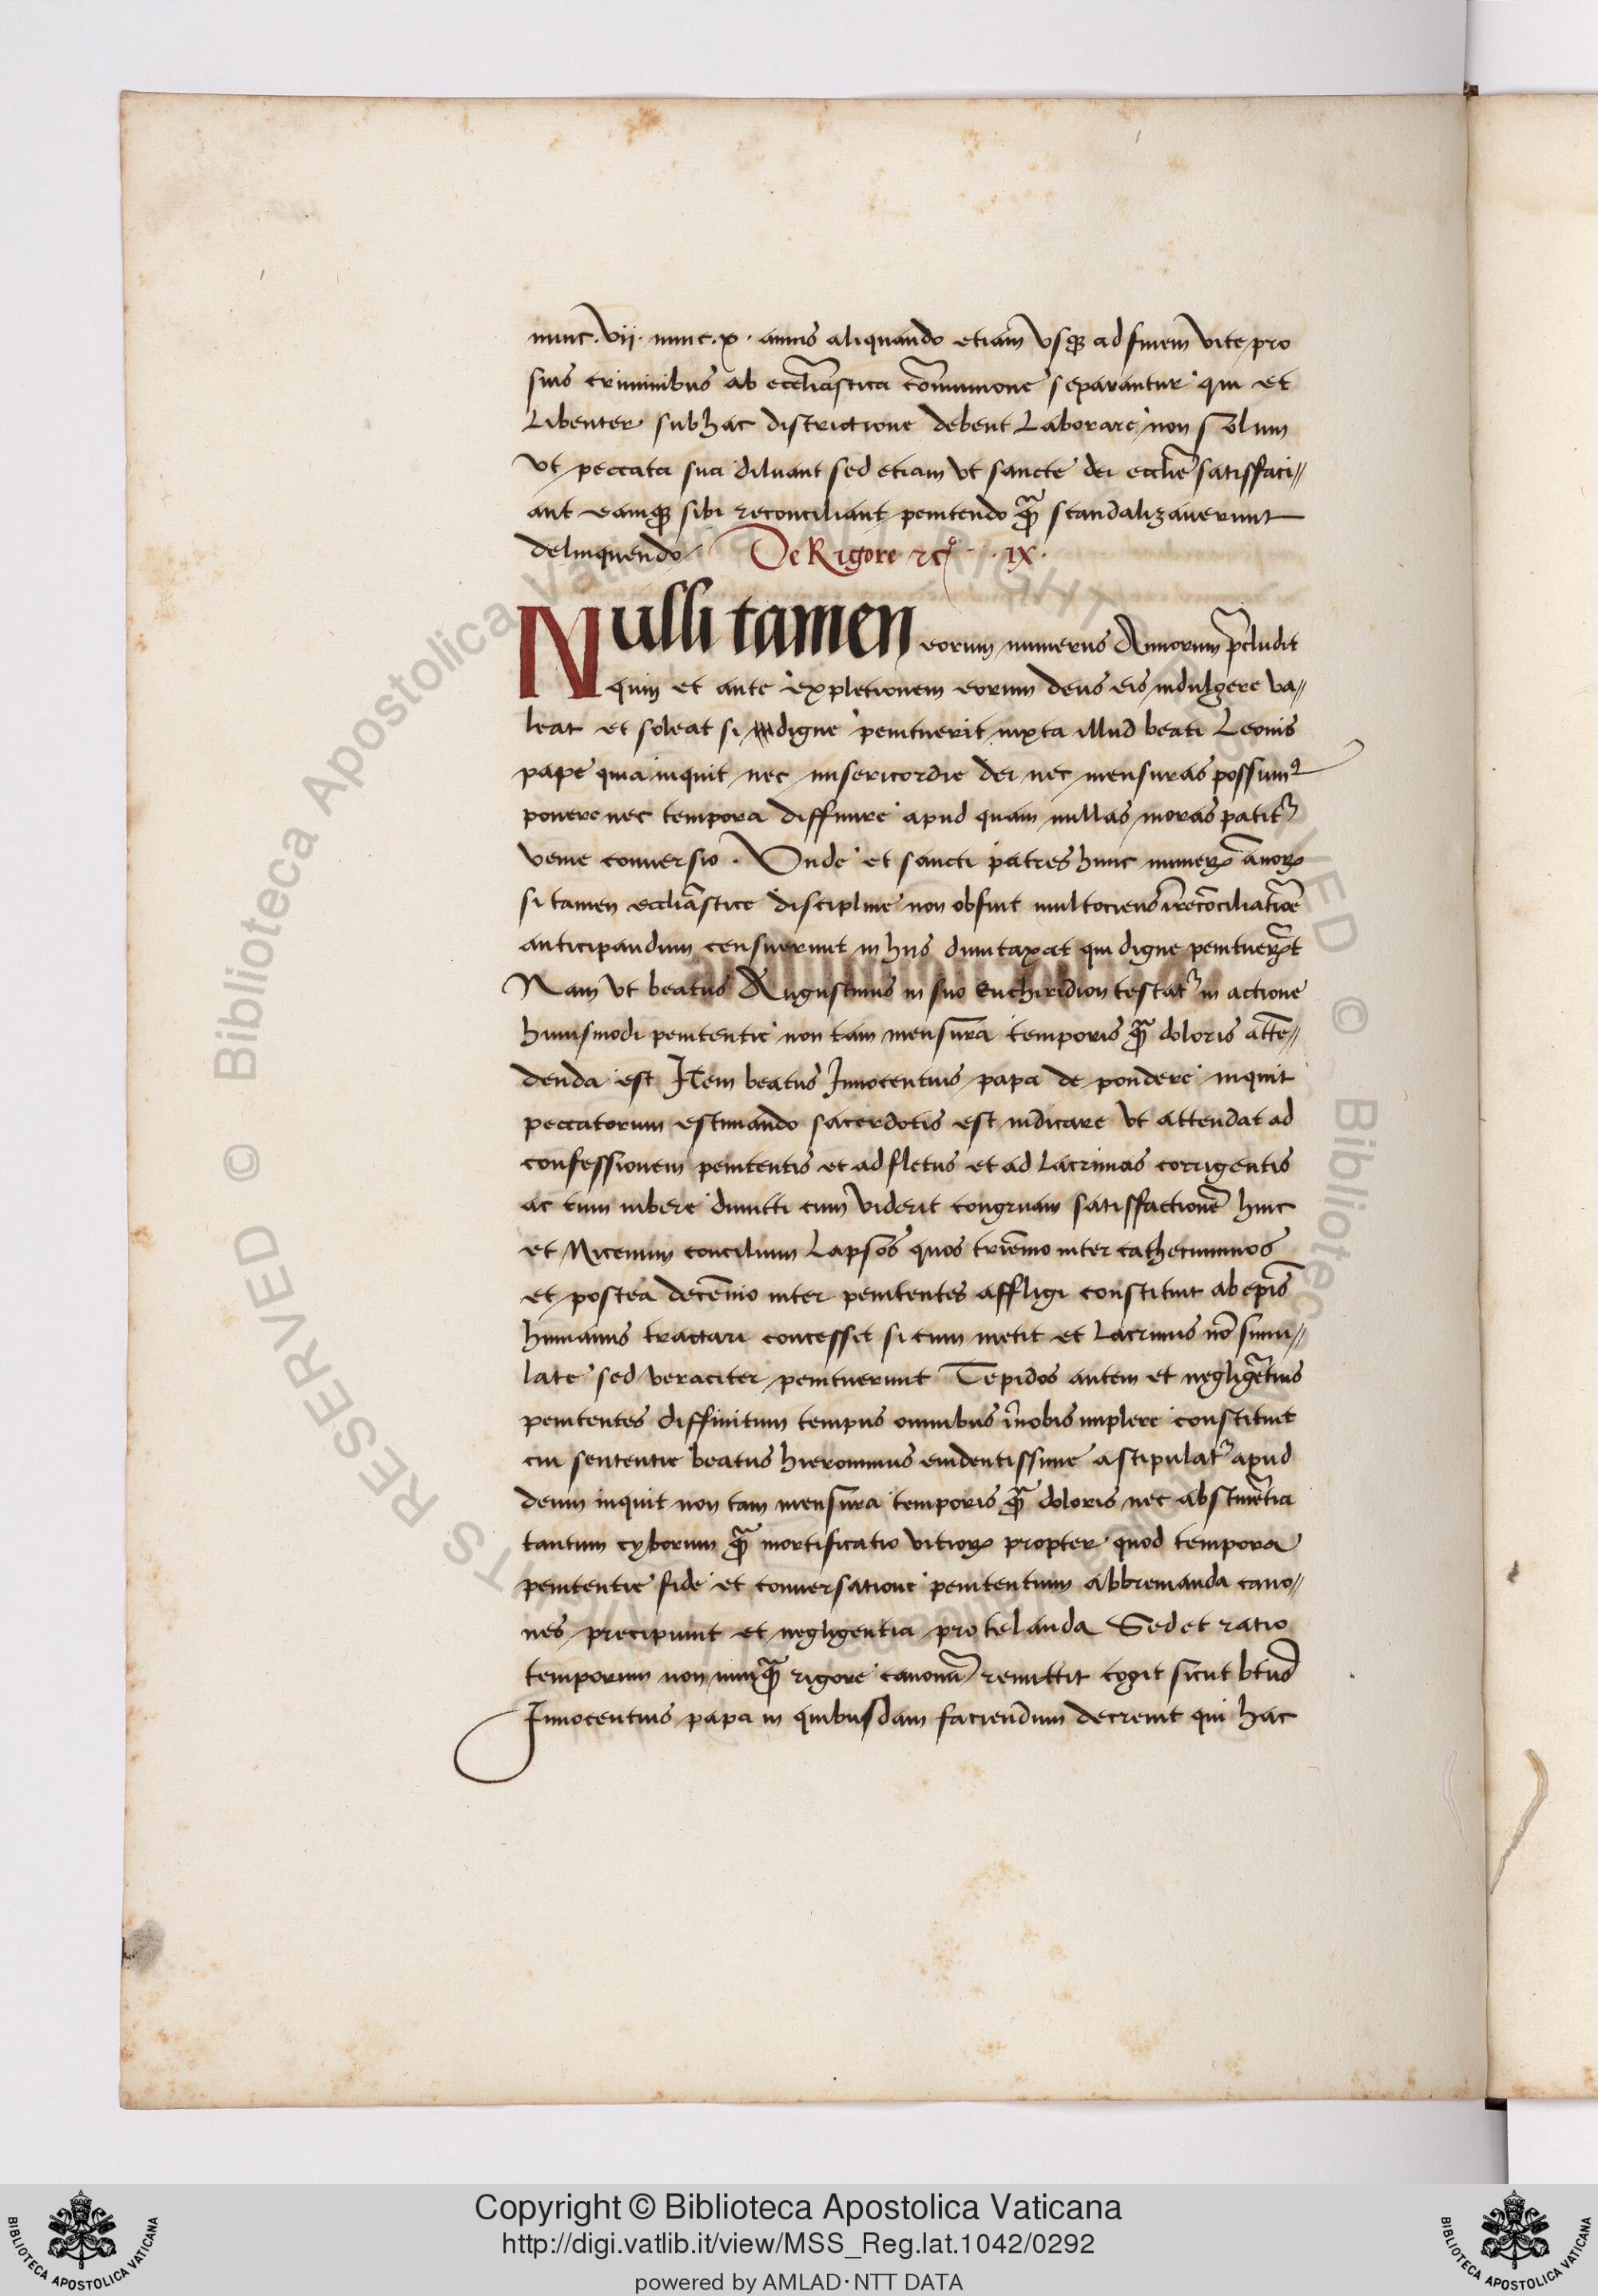 nunc. vii. nunc. x. annis aliquando etiam̄ vsqꝫ ad finem vite pro
suis criminibus ab eccliāstica cōmunione separantur qui et
Libenter sub hac districtione debent Laborare non solum
vt peccata sua diluant sed etiam vt sancte dei ecclīe satisfaci//
ant eamqꝫ sibi reconciliant penitendo qᷓꝫ scandalizauerunt
delinquendo De Rigore rc̄ · · IX ·
Nulli tamen eorum numerus Annorum p̄cludit
quin et ante expletionem eorum deus eis indulgere va//
leat et soleat si digne penituerit iuxta illud beati Leonis
pape quia inquit nec misericordie dei nec mensuras possumꝰ
ponere nec tempora diffinire apud quam nullas moras patitᷣ
venie conuersio. Vnde et sancti patres hunc numerꝝ ānorꝝ
si tamen eccliāstice discipline non obsint multociens ī recōciliatiōe
anticipandum censuerunt in hiis dumtaxat qui digne penituerūt
Nam vt beatus Augustinus in suo Enchiridion testatᷣ in actione
huiusmodi penitentie non tam mensura temporis qᷓꝫ doloris attē//
denda est Item beatus Innocentius papa de pondere inquit
peccatorum estimando sacerdotis est iudicare vt attendat ad
confessionem penitentis et ad fletus et ad lacrimas corrigentis
ac tum iubere dimitti cum viderit congruam satisfactionē hinc
et Nicenum concilium Lapsos quos triēnio inter cathecuminos
et postea decēnio inter penitentes affligi constituit ab ep̄is
humanius tractari concessit si cum metit et Lacrimis nō simu//
late sed veraciter penituerunt Tepidos autem et negligētius
penitentes diffinitum tempus omnibus īnobis implere constituit
cui sententie beatus hieronimus euidentissime astipulatᷣ apud
deum inquit non tam mensura temporis qᷓꝫ doloris nec abstinētia
tantum cyborum qᷓꝫ mortificatio vitiorꝝ propter quod tempora
penitentie fide et conuersatione penitentum abbreuianda cano//
nes precipiunt et negligentia protelanda Sed et ratio
temporum non nunqᷓꝫ rigore canonū remittit cogit sicut btūs
Innocentius papa in quibusdam faciendum decreuit qui hac
© Biblioteca Apostolica Vaticana
Copyright © Biblioteca Apostolica Vaticana
http://digi.vatlib.it/view/MSS_Reg.lat.1042/0292
powered by AMLAD·NTT DATA
BIBLIOTECA APOSTOLICA VATICANA
BIBLIOTECA APOSTOLICA VATICANA